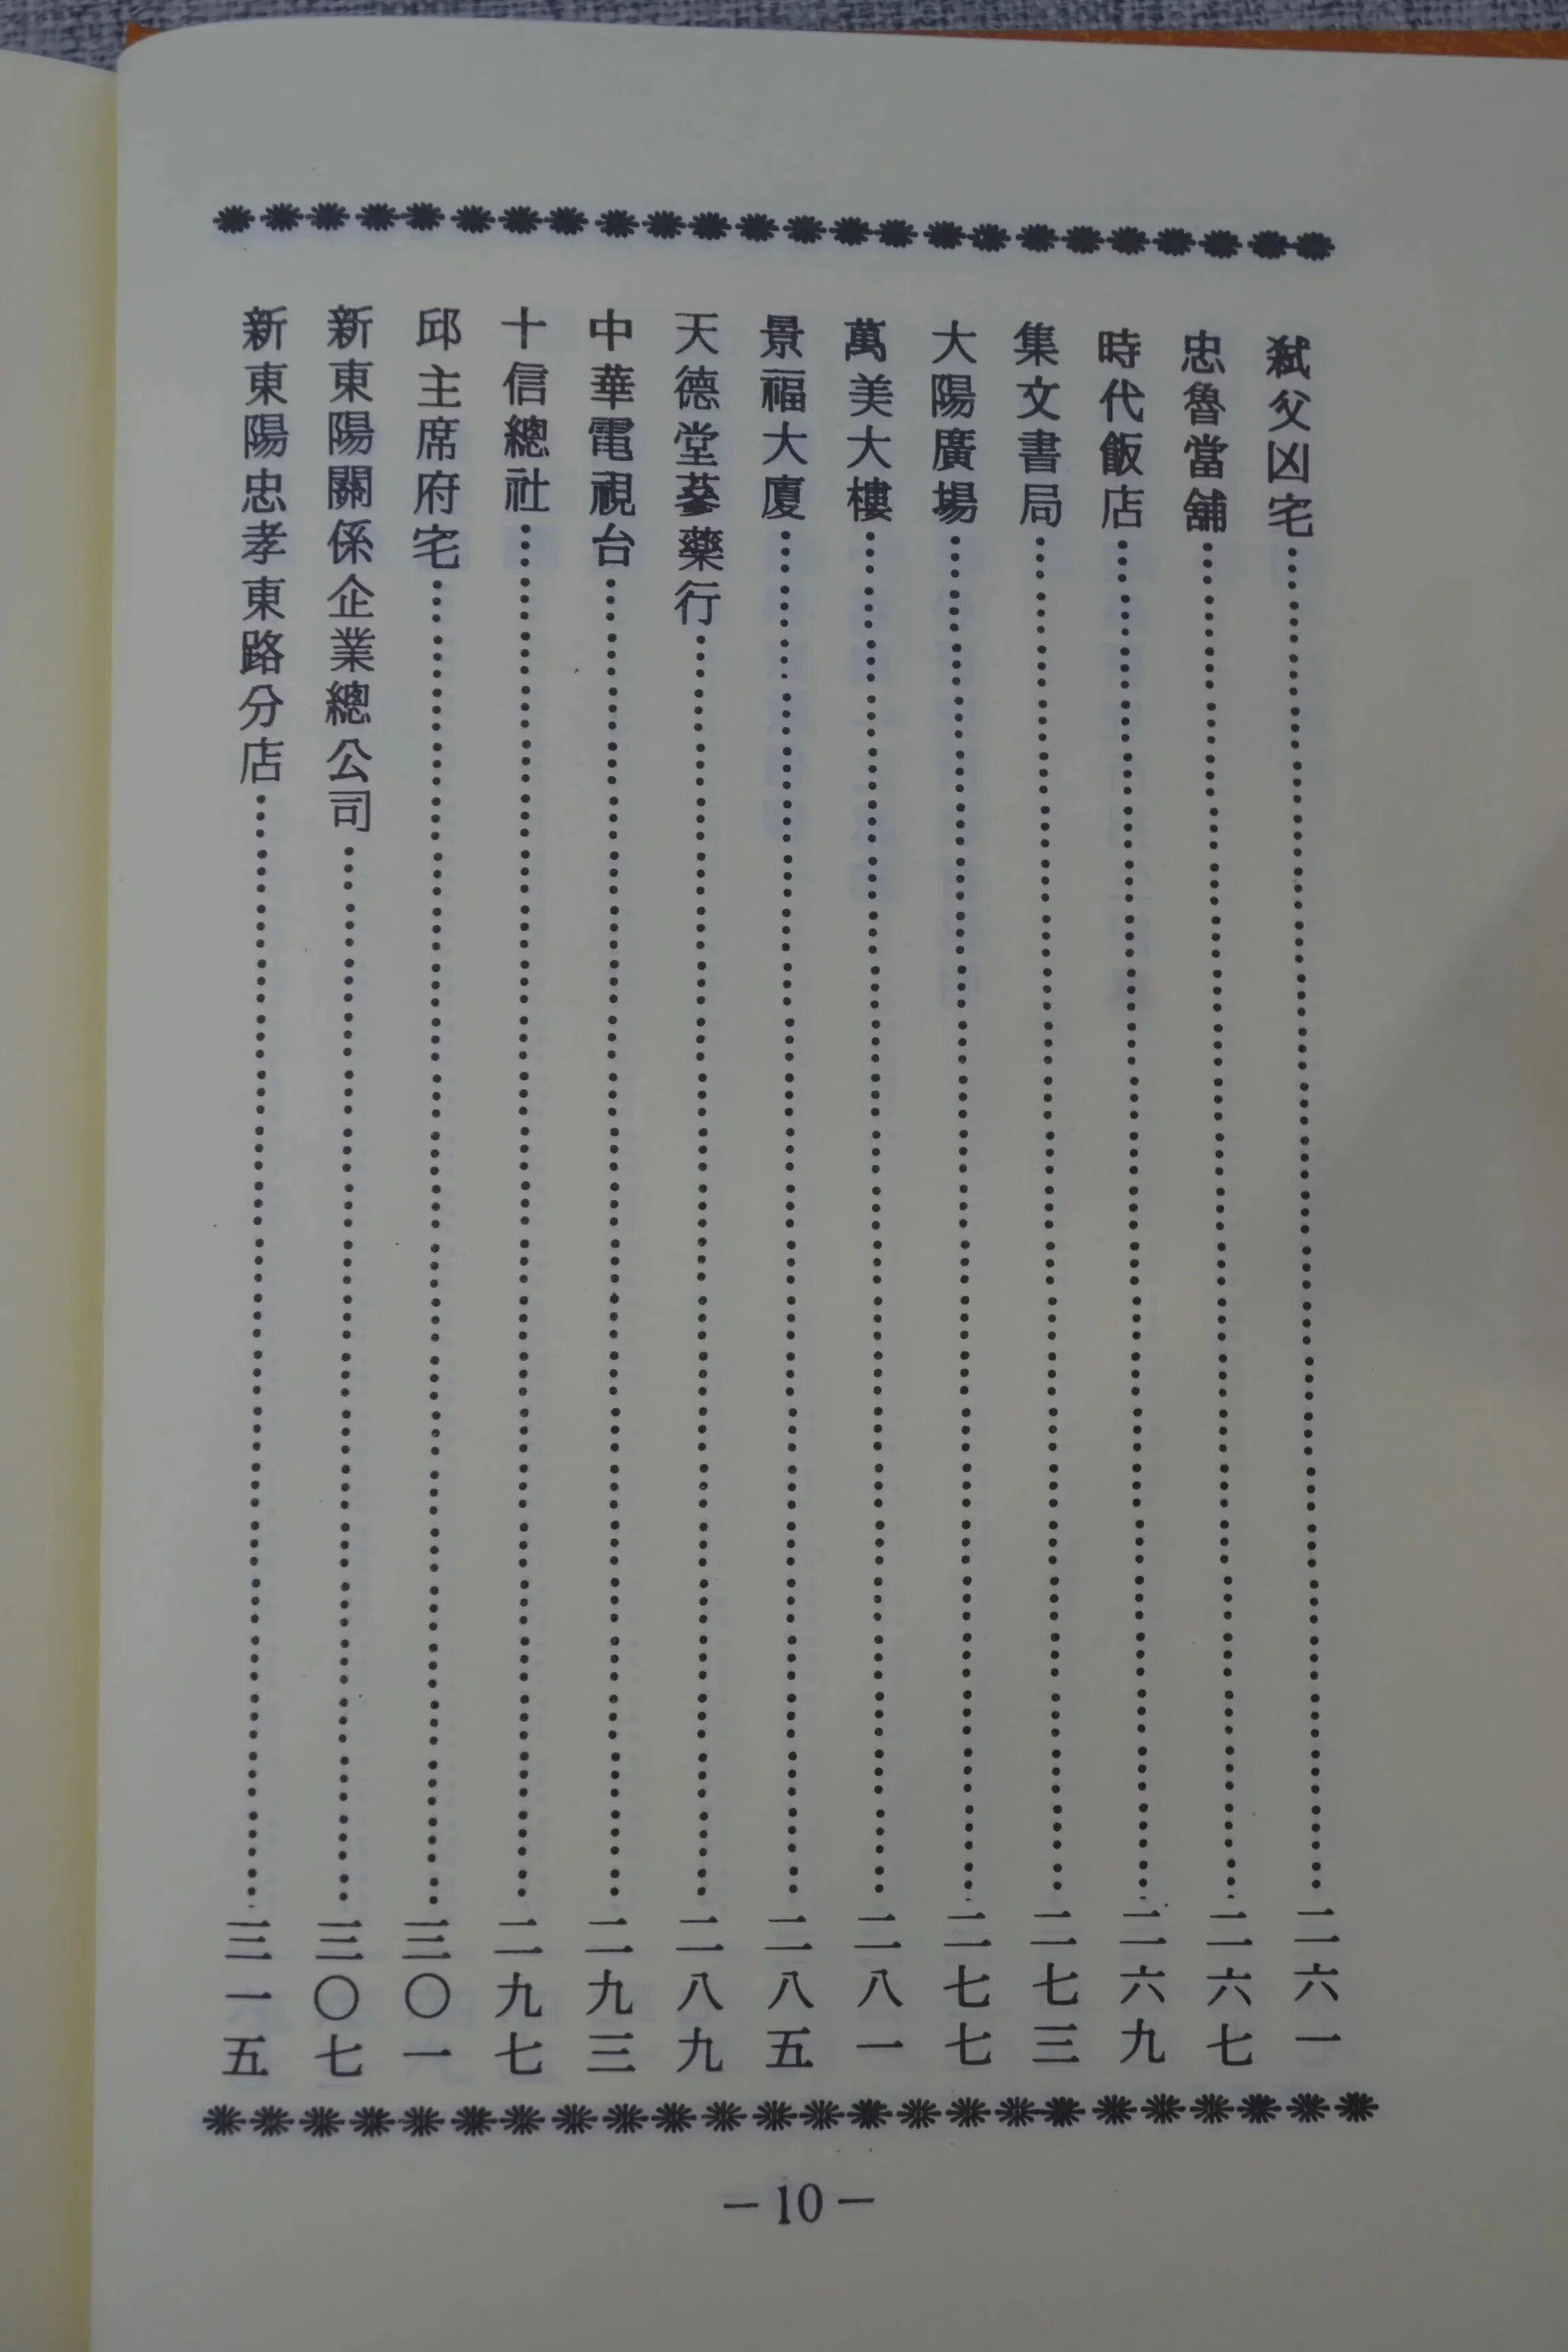 弑父凶宅⋯⋯⋯⋯二六一
忠魯當舖⋯⋯⋯⋯二六七
時代飯店⋯⋯⋯⋯二六九
集文書局⋯⋯⋯⋯二七三
大陽廣場⋯⋯⋯⋯二七七
萬美大樓⋯⋯⋯⋯二八一
景福大廈⋯⋯⋯⋯二八五
天德堂蔘藥行⋯⋯⋯⋯二八九
中華電視台⋯⋯⋯⋯二九三
十信總社⋯⋯⋯⋯二九七
邱主席府宅⋯⋯⋯⋯三〇一
新東陽關係企業總公司⋯⋯⋯⋯三〇七
新東陽忠孝東路分店⋯⋯⋯⋯三一五
－10－